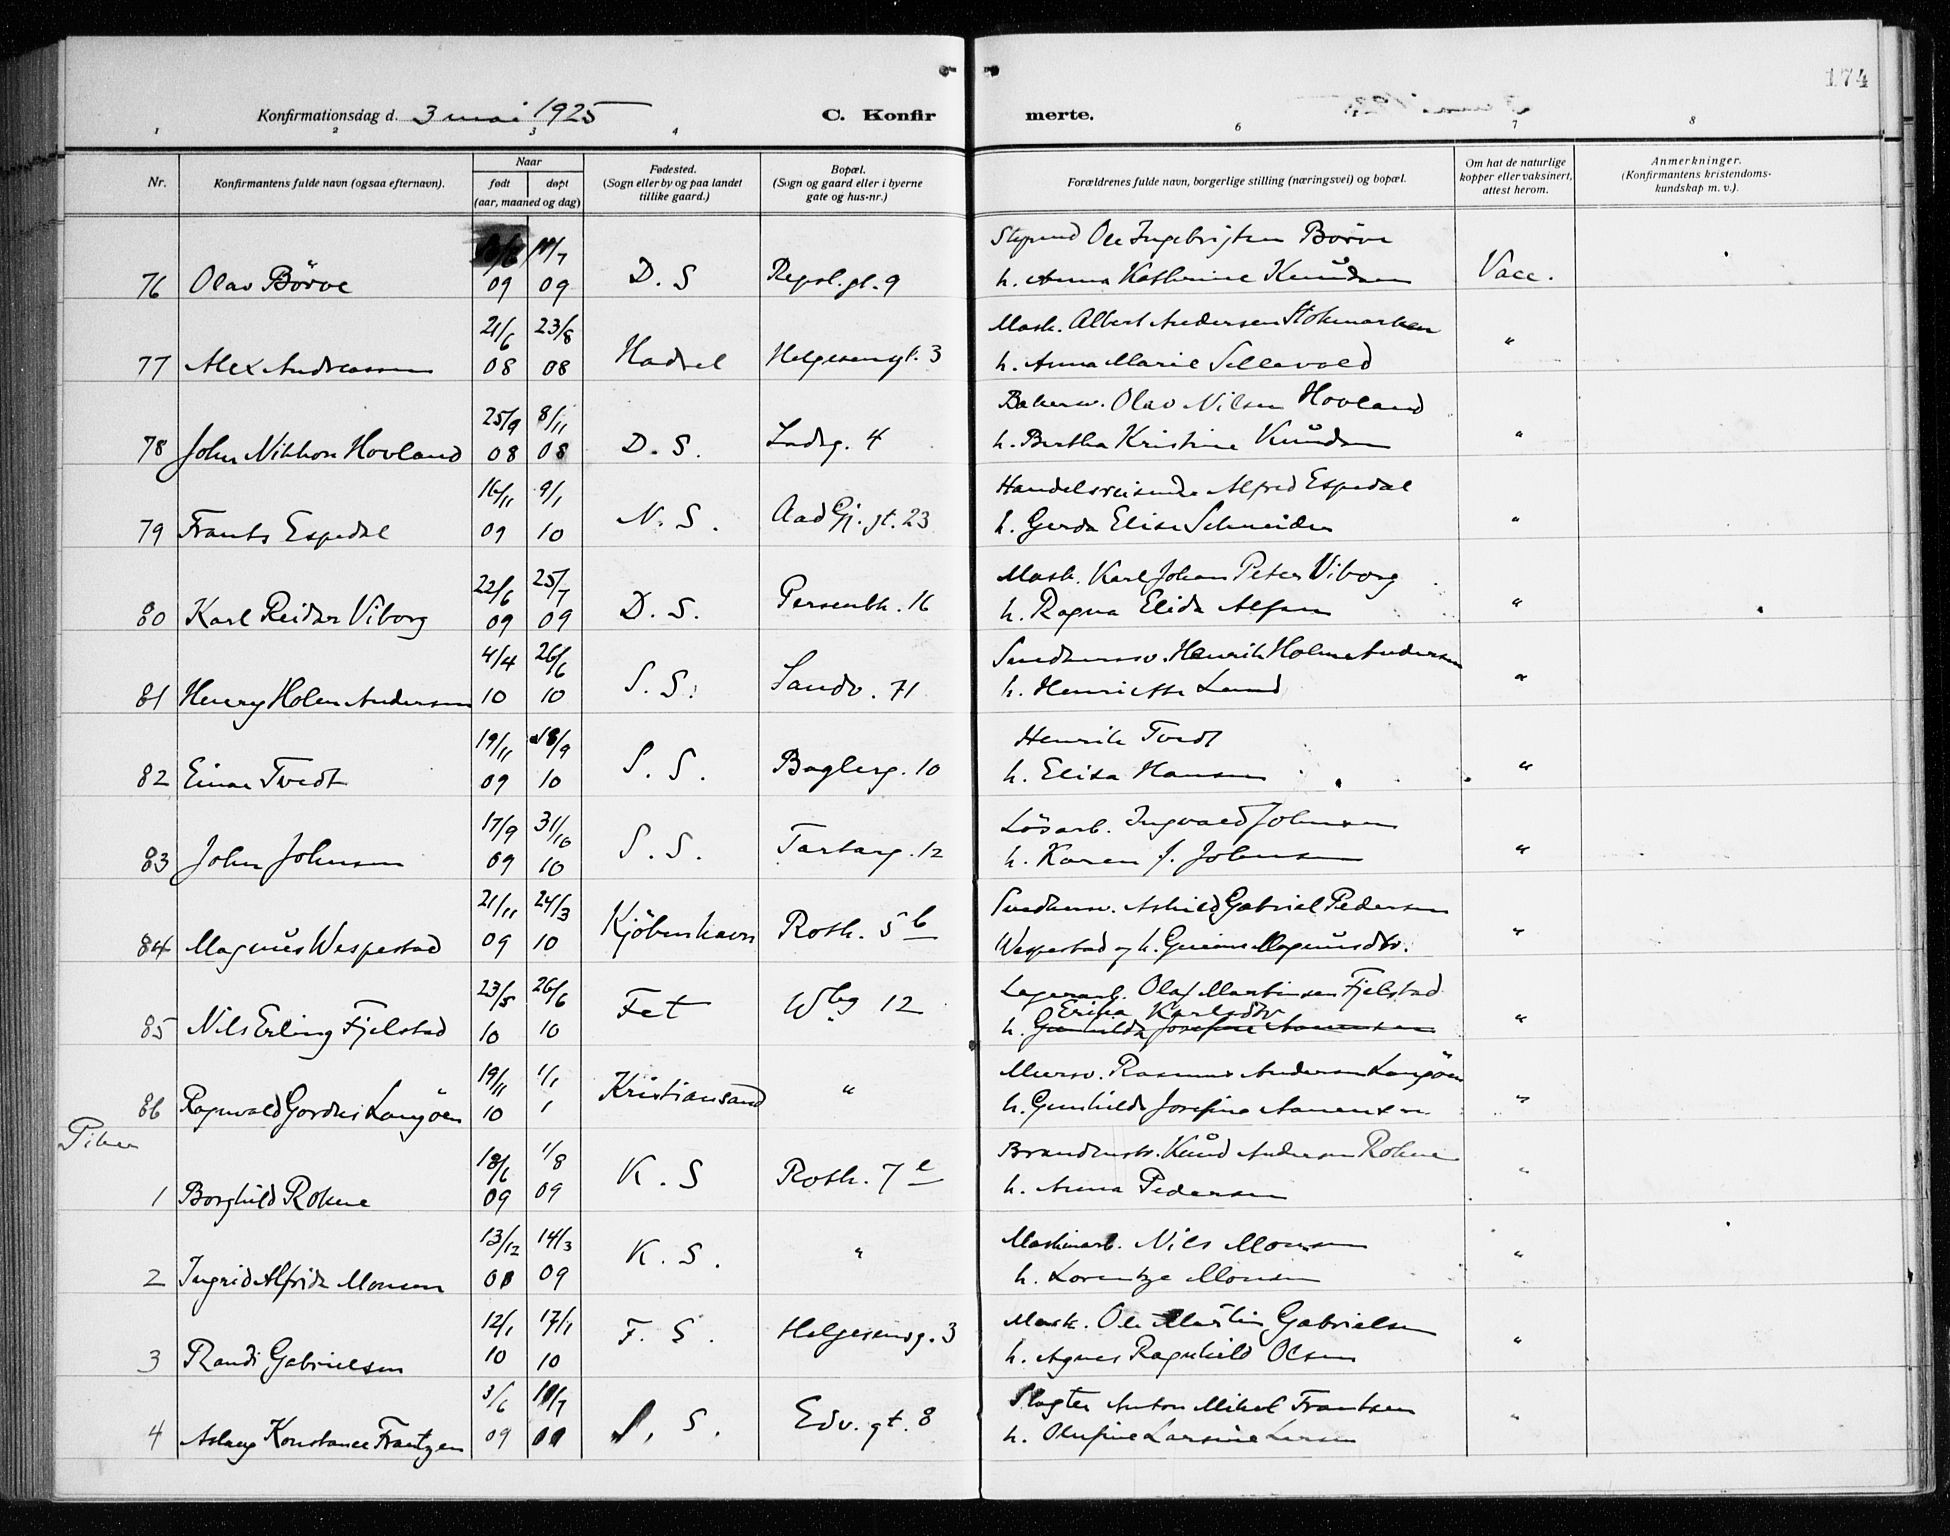 174
Konfirmationsdag d. 3 mai 1925 C. Konfir merte.
1 2 3 4 6 7 8
Nr.
Konfirmantens fulde navn (ogsaa efternavn).
Naar
født døpt
(aar, maaned og dag)
Fødested.
(Sogn eller by og paa landet
tillike gaard.)
Bopæl.
(Sogn og gaard eller i byerne
gate og hus-nr.)
Forældrenes fulde navn, borgerlige stilling (næringsvei) og bopæl.
Om hat de naturlige
kopper eller vaksinert,
attest herom.
Anmerkninger.
(Konfirmantens kristendoms-
kundskap m. v.).
Ole Ingebrigtsen Börve
76 Olav Börve 09 09 D. S Repsl.gt. 9 h. Anna Kathrine Knudsen Vacc.
21/6 23/8 Mask. Albert Andersen Stokmarken
77 Alex Andreassen 08 08 Hadsel Helgesensgt. 3 h. Anna Marie Sellevold "
25/9 8/11 Bakersv. Olav Nilsen Hovland
78 John Nikkon Hovland 08 08 D. S. Ladeg. 4 h. Bertha Kristine Knudsen "
16/11 9/1 Handelsreisende Alfred Espedal
79 Frants Espedal 09 10 N. S. Aad Gj. gt. 23 h. Gerda Elise Schneider "
22/6 25/7 Mask. Karl Johan Peter Viborg
80 Karl Reidar Viborg 09 09 D. S. Persenbk. 16 h. Ragna Elida Alfsen "
4/4 26/6 Henrik Holm Andersen
81 Henry Holm Andersen 10 10 S. S. Sandv. 71 h. Henriette Lund "
19/11 18/9 Henrik Tvedt
82 Einar Tvedt 09 10 S. S. Baglerg. 10 h. Elisa Hansen "
17/9 31/10 Lösarb. Ingvald Johnsen
83 John Johnsen 09 10 S. S. Tartarg. 12 h. Karen f. Johnsen "
21/11 24/3 Gabriel Pedersen
84 Magnus Wespestad 09 10 Kjöbenhavn Roth. 5 b Wespestad og h. Magnusdtr. "
23/5 26/6 Lagerarb. Olaf Martinsen Fjelstad
Erika Karlsdtr
85 Nils Erling Fjelstad 10 10 Fet Wbg 12 h. Gunhilda Josefine Aanensen "
19/11 1/1 Mursv. Rasmus Andersen Langöen
86 Ragnvald Gordus Langöen 10 1 Kristiansand " h. Gunhilda Josefine Aanensen "
Piker
18/6 1/8 Knud Andersen Rokne
1 Borghild Rokne 09 09 K. S Roth. 7 e h. Anna Pedersen "
13/12 14/3 Maskinarb. Nils Monsen
2 Ingrid Alfrida Monsen 08 09 K. S. " h. Lorentze Monsen "
12/1 17/1 Mask. Ole Martin Gabrielsen
3 Randi Gabrielsen 10 10 F. S. Helgesensg. 3 h. Agnes Ragnhild Olsen "
3/6 Slagter Anton Mikal Frantsen
4 Aslaug Konstance Frantzen 09 09 S. Edv. gt. 8 h. Olufine Larsine Larsen "